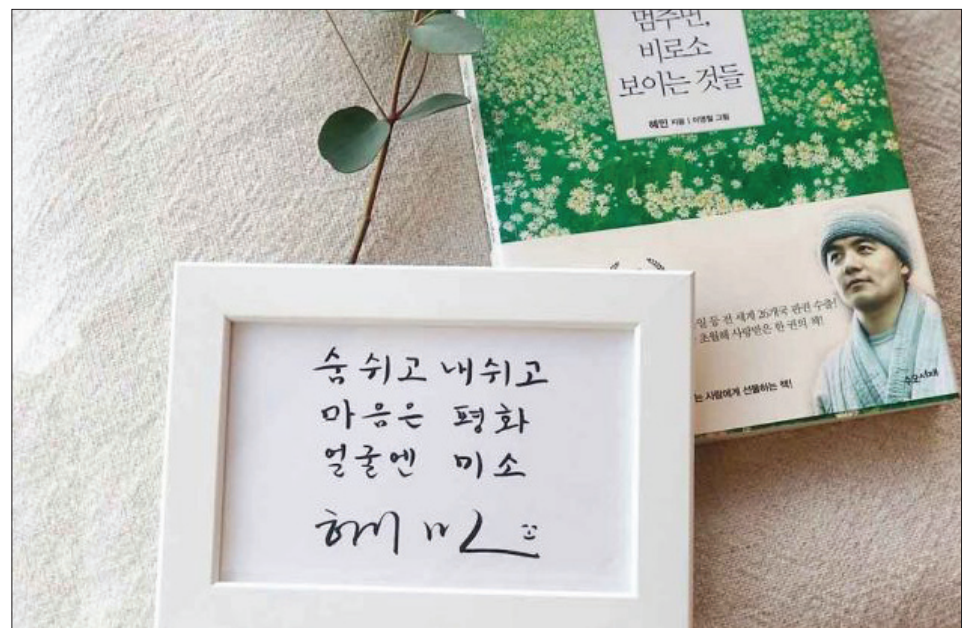 멈추면,
비로소
보이는 것들
혜민 지음 | 이영철 그림
일 등 전 세계 26개국 판권 수출!
초월해 사랑받은 한 권의 책!
는 사람에게 선물하는 책!
수오서재
숨쉬고 내쉬고
마음은 평화
얼굴엔 미소
혜민